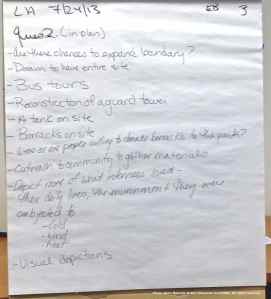 LA 7/24/13 3
Ques 2 (in plan)
- Are there chances to expand boundary?
- Dream to have entire site
- Bus tours
- Reconstruction of a guard tower
- A tank on site
- Barracks on site
Were or are people willing to donate barracks to the park?
- Outreach to community to gather materials
- Depict more of what internees lived -
their daily lives, the environment they were
subjected to
- Cold
- Wind
- heat
- Visual depictions